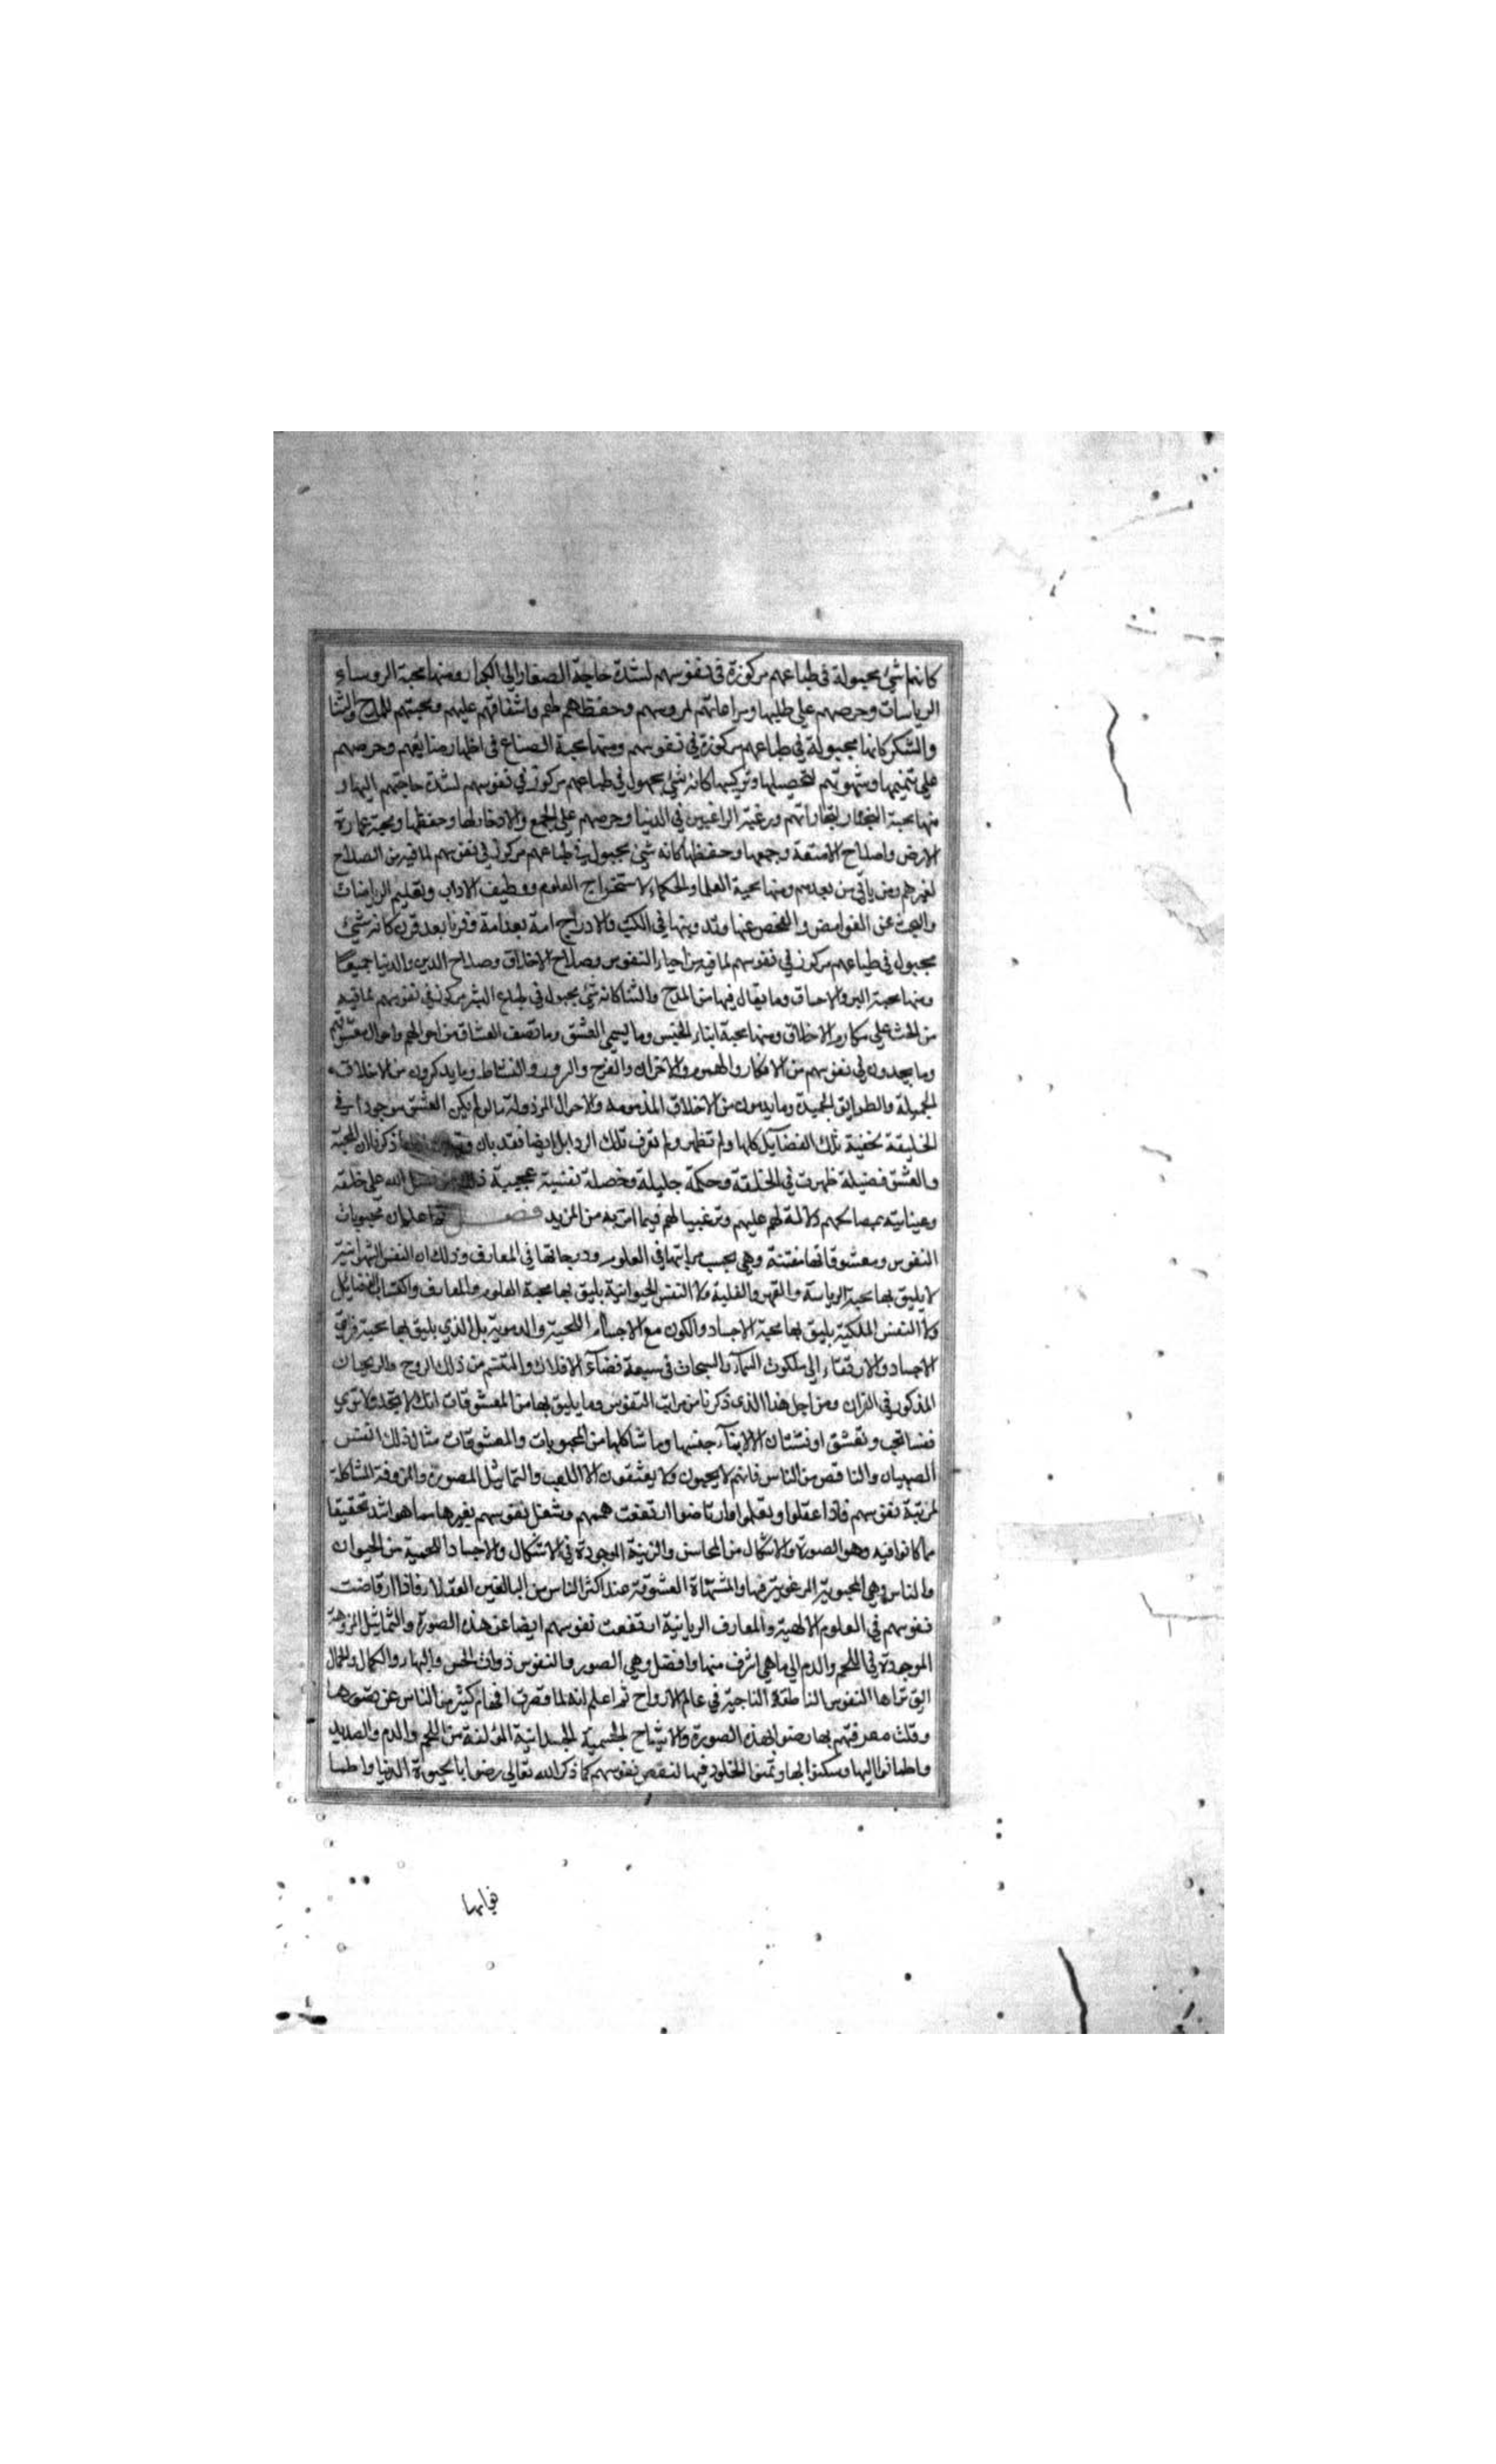 كانها شئ مجبولة فى طباعهم مركوزة فى نفوسهم لشدة حاجة الصغار الى الكبار ومنها محبة الروساء
الرياسات وحرصهم على طلبها ومراعاتهم لمروسهم وحفظهم لهم واشفاقهم عليهم ومحبتهم للمدح والثنا
والشكر كانها مجبولة في طباعهم مركوزة في نفوسهم ومنها محبة الصناع فى اظهار صنايعهم وحرصهم
على تتميمها وشهوتهم لتحصيلها وتركيبها كانه شئ مجبول في طباعهم مركوز في نفوسهم لشدة حاجتهم اليها و
منها محبة التجار لتجاراتهم ورغبة الراغبين في الدنيا وحرصهم على الجمع والادخار لها وحفظها ومحبة عمارة
الارض واصلاح الامتعة وجمعها وحفظها كانه شئ مجبول في طباعهم مركوز في نفوسهم لما فيه من الصلاح
لغيرهم ومن ياتى من بعدهم ومنها محبة العلما والحكماء لاستخراج العلوم ووظيف الاداب وتعليم الرياضات
والبحث عن الغوامض والفحص عنها وتدوينها في الكتب والادراج امة بعد امة وقرنا بعد قرن كانه شئ
مجبول فى طباعهم مركوز في نفوسهم لما فيه من احياء النفوس وصلاح الاخلاق وصلاح الدين والدنيا جميعا
ومنها محبة البر والاحسان وما يقال فيها من المدح والثنا كانه شئ مجبول في طباع البشر مركوز في نفوسهم لما فيه
من الحث على مكارم الاخلاق ومنها محبة ابناء الجنس وما يسمى العشق وما تصف العشاق من احوالهم واحوال معشوقيهم
وما يجدون في نفوسهم من الافكار والهموم والاحزان والفرح والسرور والنشاط وما يذكرون من الاخلاق
الجميلة والطرايق الحميدة وما يذمون من الاخلاق المذمومة والاحوال المرذولة ما لو لم يكن العشق موجودا في
الخليقة لخفيت تلك الفضايل كلها ولم تظهر ولم تعرف تلك الرذايل ايضا فقد بان ذكرنا ان المحبة
والعشق فضيلة ظهرت في الخلقة وحكمة جليلة وخصلة نفيسة عجيبة فضل الله على خلقه
وعنايته بمصالحهم ودلالة لهم عليهم وترغيبا لهم فيما اتربه من المزيد فصل ثم اعلم ان محبوبات
النفوس ومعشوقاتها مفتنة وهي بحسب مراتبها في العلوم ودرجاتها في المعارف وذلك ان النفس الشهوانية
لا يليق بها محبة الرياسة والقهر والغلبة ولا النفس الحيوانية يليق بها محبة العلوم والمعارف واكتساب الفضايل
ولا النفس الملكية يليق بها محبة الاجساد والكون مع الاجسام اللحمية والدموية بل الذي يليق بها محبة فراق
الاجساد والارتقاء الى ملكوت السماء والسبحات فى سعة فضاء الافلاك والتنسم من ذلك الروح والريحان
المذكور في القران ومن اجل هذا الذى ذكرنا من مراتب النفوس وما يليق بها من المعشوقات انك لا تجد ولا ترى
نفسا تحب وتعشق او تشتاق الا ابناء جنسها وما شاكلها من المحبوبات والمعشوقات مثال ذلك انفس
الصبيان والناقص من الناس فانهم لا يحبون ولا يعشقون الا اللعب والتماثيل المصورة والمزوقة المشاكلة
لمرتبة نفوسهم فاذا عقلوا وتعلموا وارتاضوا ارتفعت هممهم وشغل نفوسهم بغيرها مما هو اشد تحقيقا
مما كانوا فيه وهو الصورة والاشكال من المحاسن والزينة الموجودة في الاشكال والاجساد اللحمية من الحيوان
والناس وهي المحبوبة المرغوبة فيها والمشتهاة المعشوقة عند اكثر الناس من البالغين العقلاء فاذا ارتاضت
نفوسهم في العلوم الالهية والمعارف الربانية ارتفعت نفوسهم ايضا عن هذه الصورة والتماثيل المزوقة
الموجدة في اللحم والدم الى ما هي اشرف منها وافضل وهي الصور والنفوس ذوات الحسن والبهاء والكمال والجمال
التى تراها النفوس الناطقة الناجية في عالم الارواح ثم اعلم انه لما قصرت افهام كثير من الناس عن تصورها
وقلت معرفتهم بها رضوا بهذه الصورة والاشباح الجسمية الجسدانية المؤلفة من اللحم والدم والصديد
واطمانوا اليها وسكنوا بها وتمنوا الخلود فيها لنقص نفوسهم كما ذكر الله تعالى رضوا بالحيوة الدنيا واطمـا